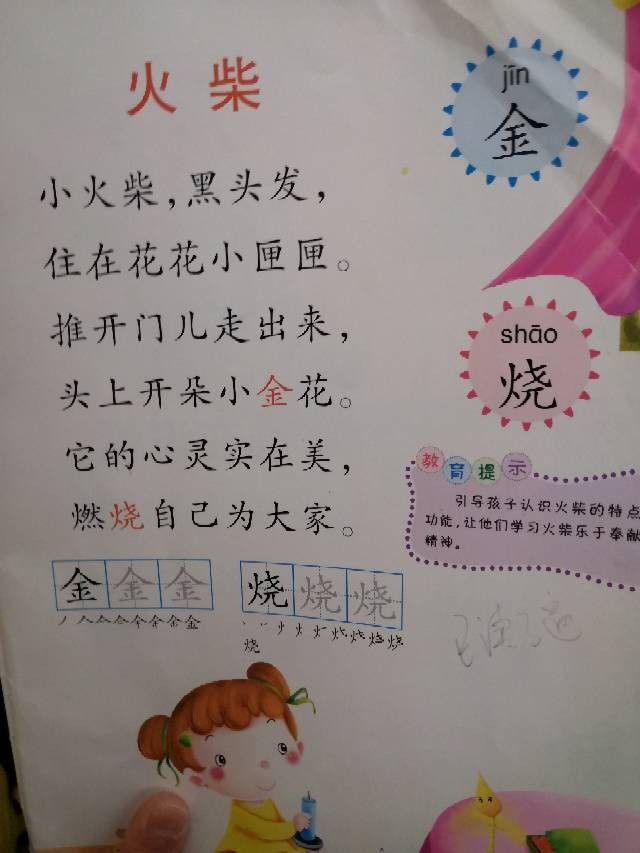 火柴
小火柴，黑头发，
住在花花小匣匣。
推开门儿走出来，
头上开朵小金花。
它的心灵实在美，
燃烧自己为大家。
jīn
金
shāo
烧
教育提示
引导孩子认识火柴的特点
功能，让他们学习火柴乐于奉献
精神。
金金金
烧烧烧